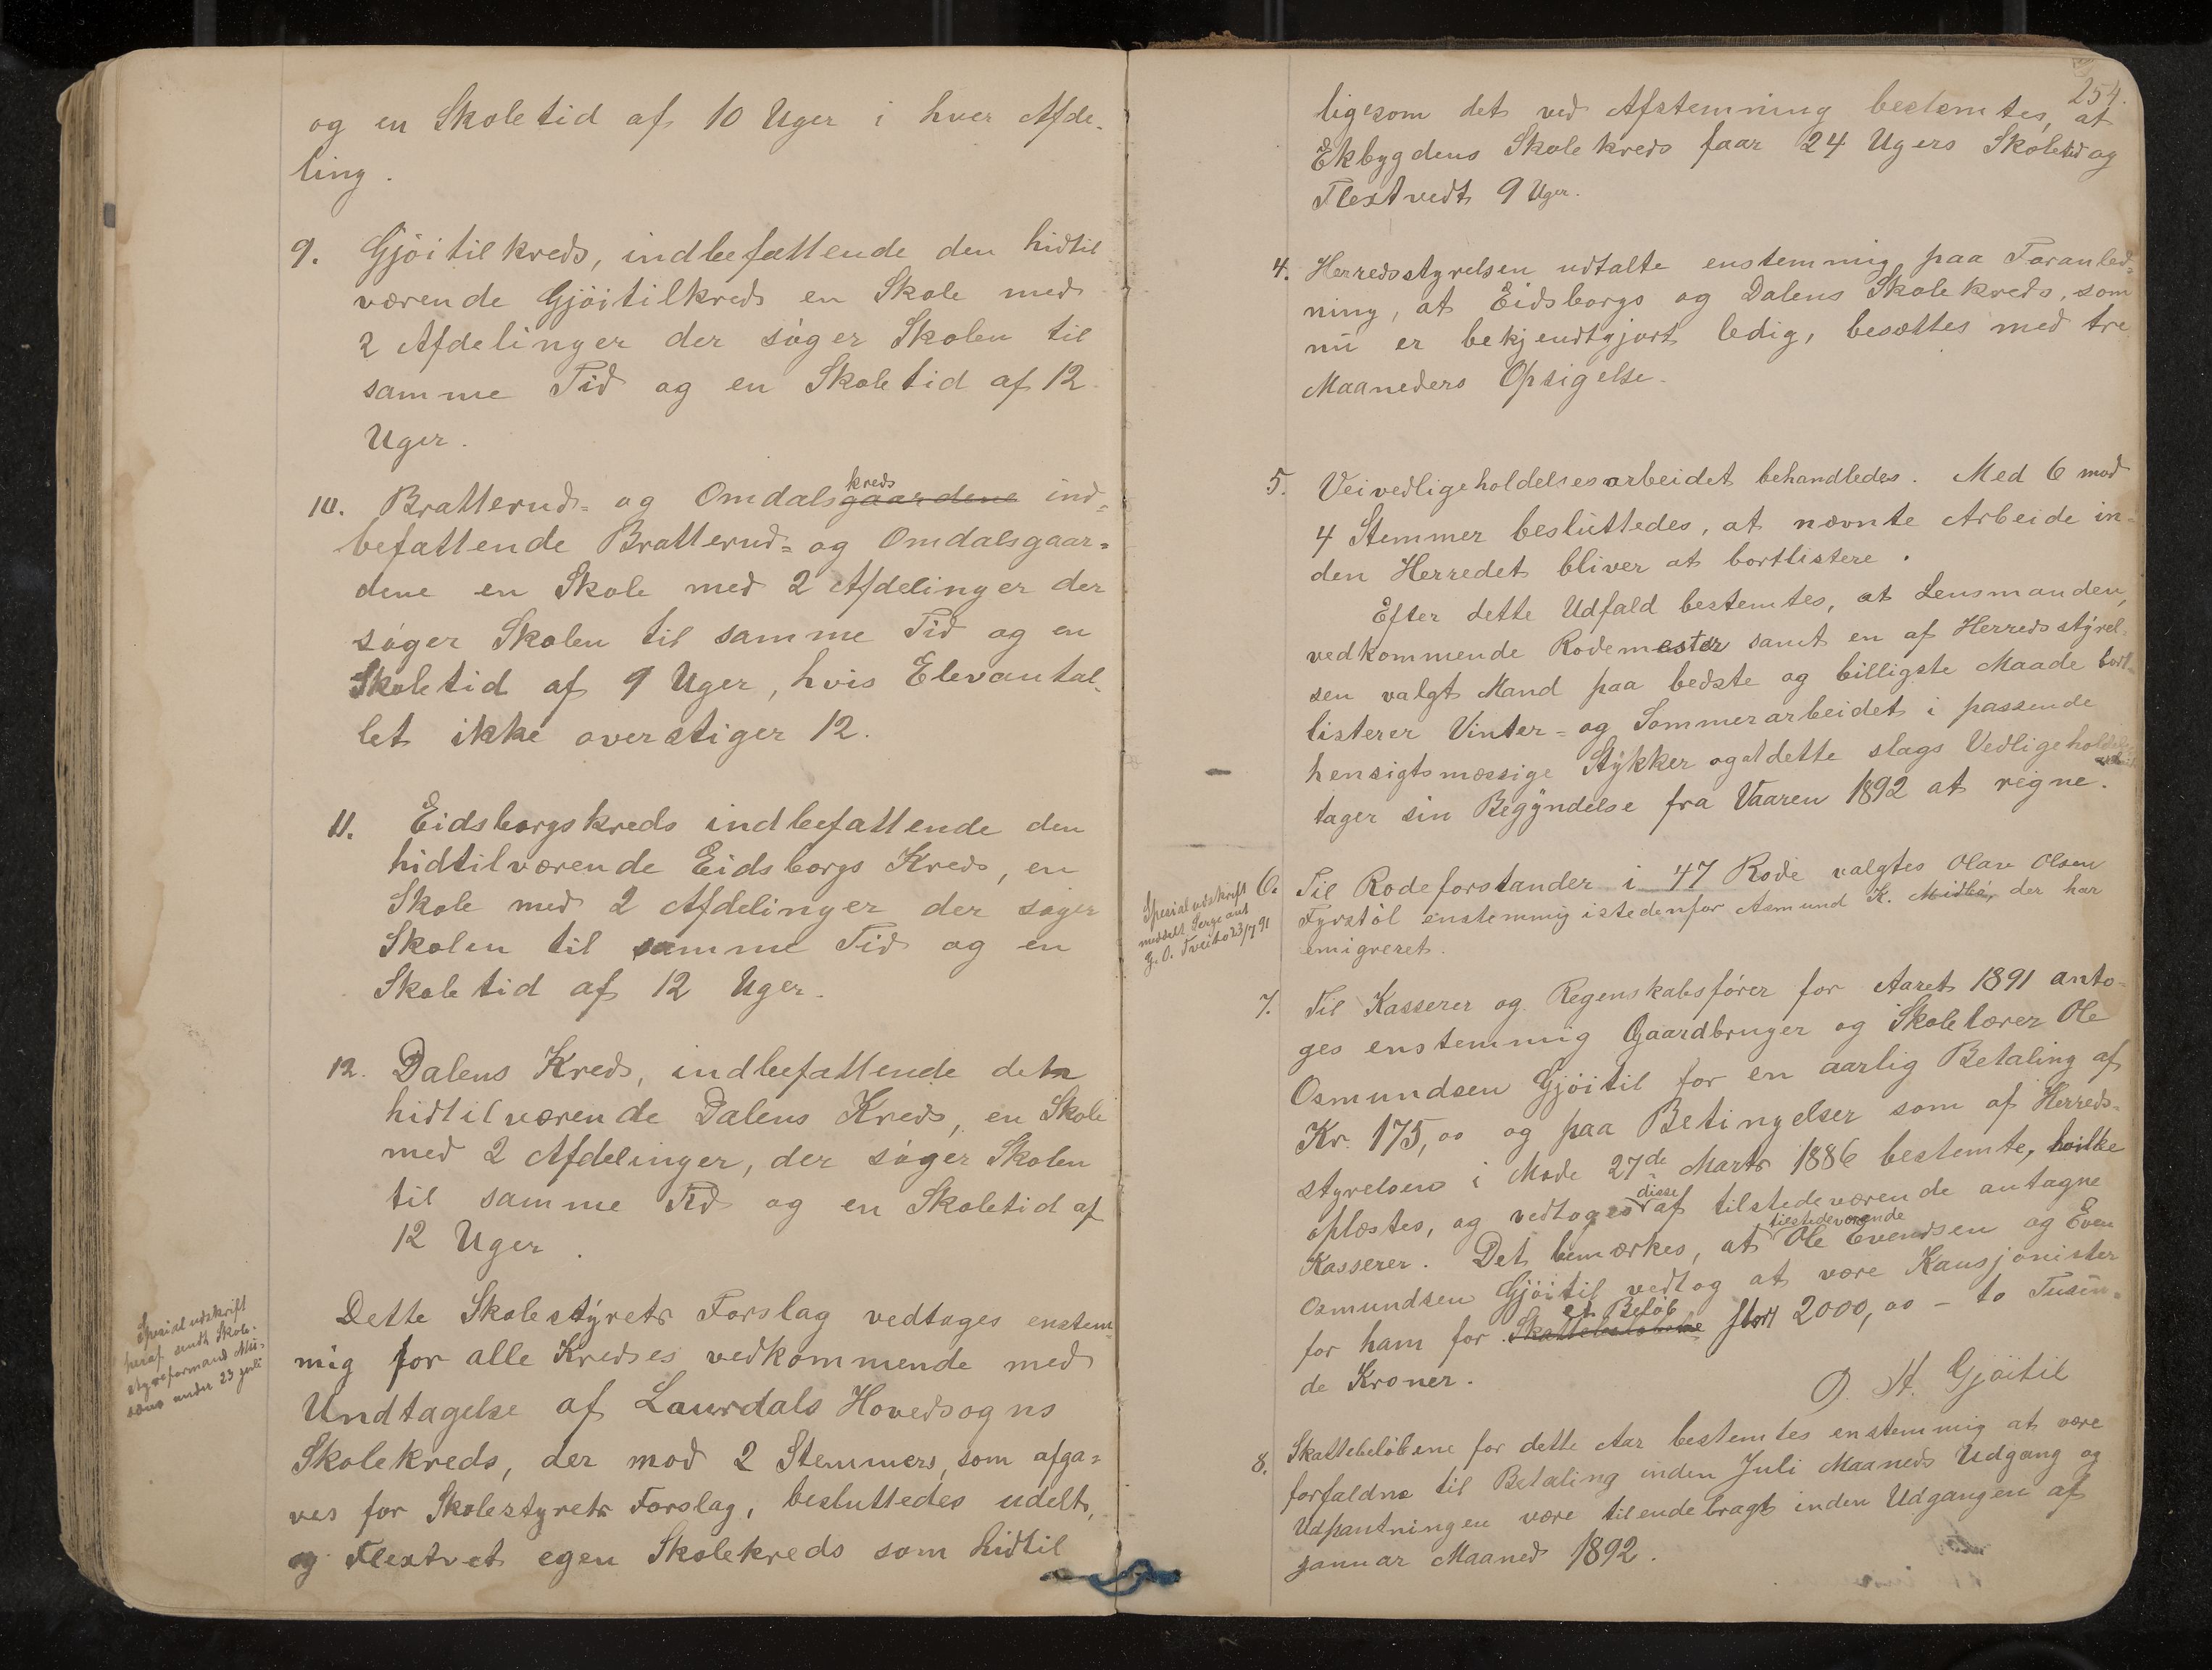 og en Skoletid af 10 Uger i hver Afde-
ling.
9. Gjöitilkreds, indbefattende den hidtil
værende Gjöitilkreds en Skole med
2 Afdelinger der söger Skolen til
samme Tid og en Skoletid af 12
Uger.
kreds
10. Bratterud- og Omdalsgaardene ind-
befattende Bratterud- og Omdalsgaar-
dene en Skole med 2 Afdelinger der
söger Skolen til samme Tid og en
Skoletid af 9 Uger, hvis Elevantal-
let ikke overstiger 12.
11. Eidsborgskreds indbefattende den
hidtilværende Eidsborgs Kreds, en
Skole med 2 Afdelinger der söger
Skolen til samme Tid og en
Skoletid af 12 Uger.
12. Dalens Kreds, indbefattende den
hidtilværende Dalens Kreds, en Skole
med 2 Afdelinger, der söger Skolen
til samme Tid og en Skoletid af
12 Uger.
Dette Skolestyrets Forslag vedtages enstem-
mig for alle Kredses vedkommende med
Undtagelse af Laurdals Hovedsogns
Skolekreds, der mod 2 Stemmers, som afga-
ves for Skolestyrets Forslag, besluttedes udelt,
og Flestvet egen Skolekreds som hidtil
Spesialudskrift
heraf sendt Skole-
styreformand
under 23 juli
254.
ligesom det ved Afstemning bestemtes, at
Ekbygdens Skolekreds faar 24 Ugers Skoletid og
Flestvedt 9 Uger.
4. Herredsstyrelsen udtalte enstemmig paa Foranled-
ning, at Eidsborgs og Dalens Skolekreds, som
nu er bekjendtgjort ledig, besættes med tre
Maaneders Opsigelse.
5. Veivedligeholdelsesarbeidet behandledes. Med 6 mod
4 Stemmer besluttedes, at nævnte Arbeide in-
den Herredet bliver at bortlistere.
Efter dette Udfald bestemtes, at Lensmanden,
vedkommende Rodemester samt en af Herredsstyrel-
sen valgt Mand paa bedste og billigste Maade bort-
listerer Vinter- og Sommerarbeidet i passende
hensigtsmæssige Stykker og at dette slags Vedligehold
tager sin Begyndelse fra Vaaren 1892 at regne.
Spesialudskrift
meddelt Sergeant
J. O. Tveito 23/7 91
6. Til Rodeforstander i 47 Rode valgtes Olav Olsen
Fyrstöl enstemmig istedenfor Asmund K. Midbö, der har
emigreret.
7. Til Kasserer og Regenskabsförer for Aaret 1891 anto-
ges enstemmig Gaardbruger og Skolelærer Ole
Osmundsen Gjöitil for en aarlig Betaling af
Kr. 175,00 og paa Betingelser som af Herreds-
styrelsen i Möde 27de Marts 1886 bestemte, hvilke
disse
oplæstes, og vedtoges af tilstedeværende antagne
tilstedeværende
Kasserer. Det bemærkes, at Ole Evensen og Even
Osmundsen Gjöitil vedtog at være Kausjonister
et Belöb
for ham for Skattebelöbene stort 2000,00 - to Tusin-
de Kroner.
O. A. Gjöitil
8. Skattebelöbene for dette Aar bestemtes enstemmig at være
forfaldne til Betaling inden Juli Maaneds Udgang og
Udpantningen være tilendebragt inden Udgangen af
Januar Maaned 1892.